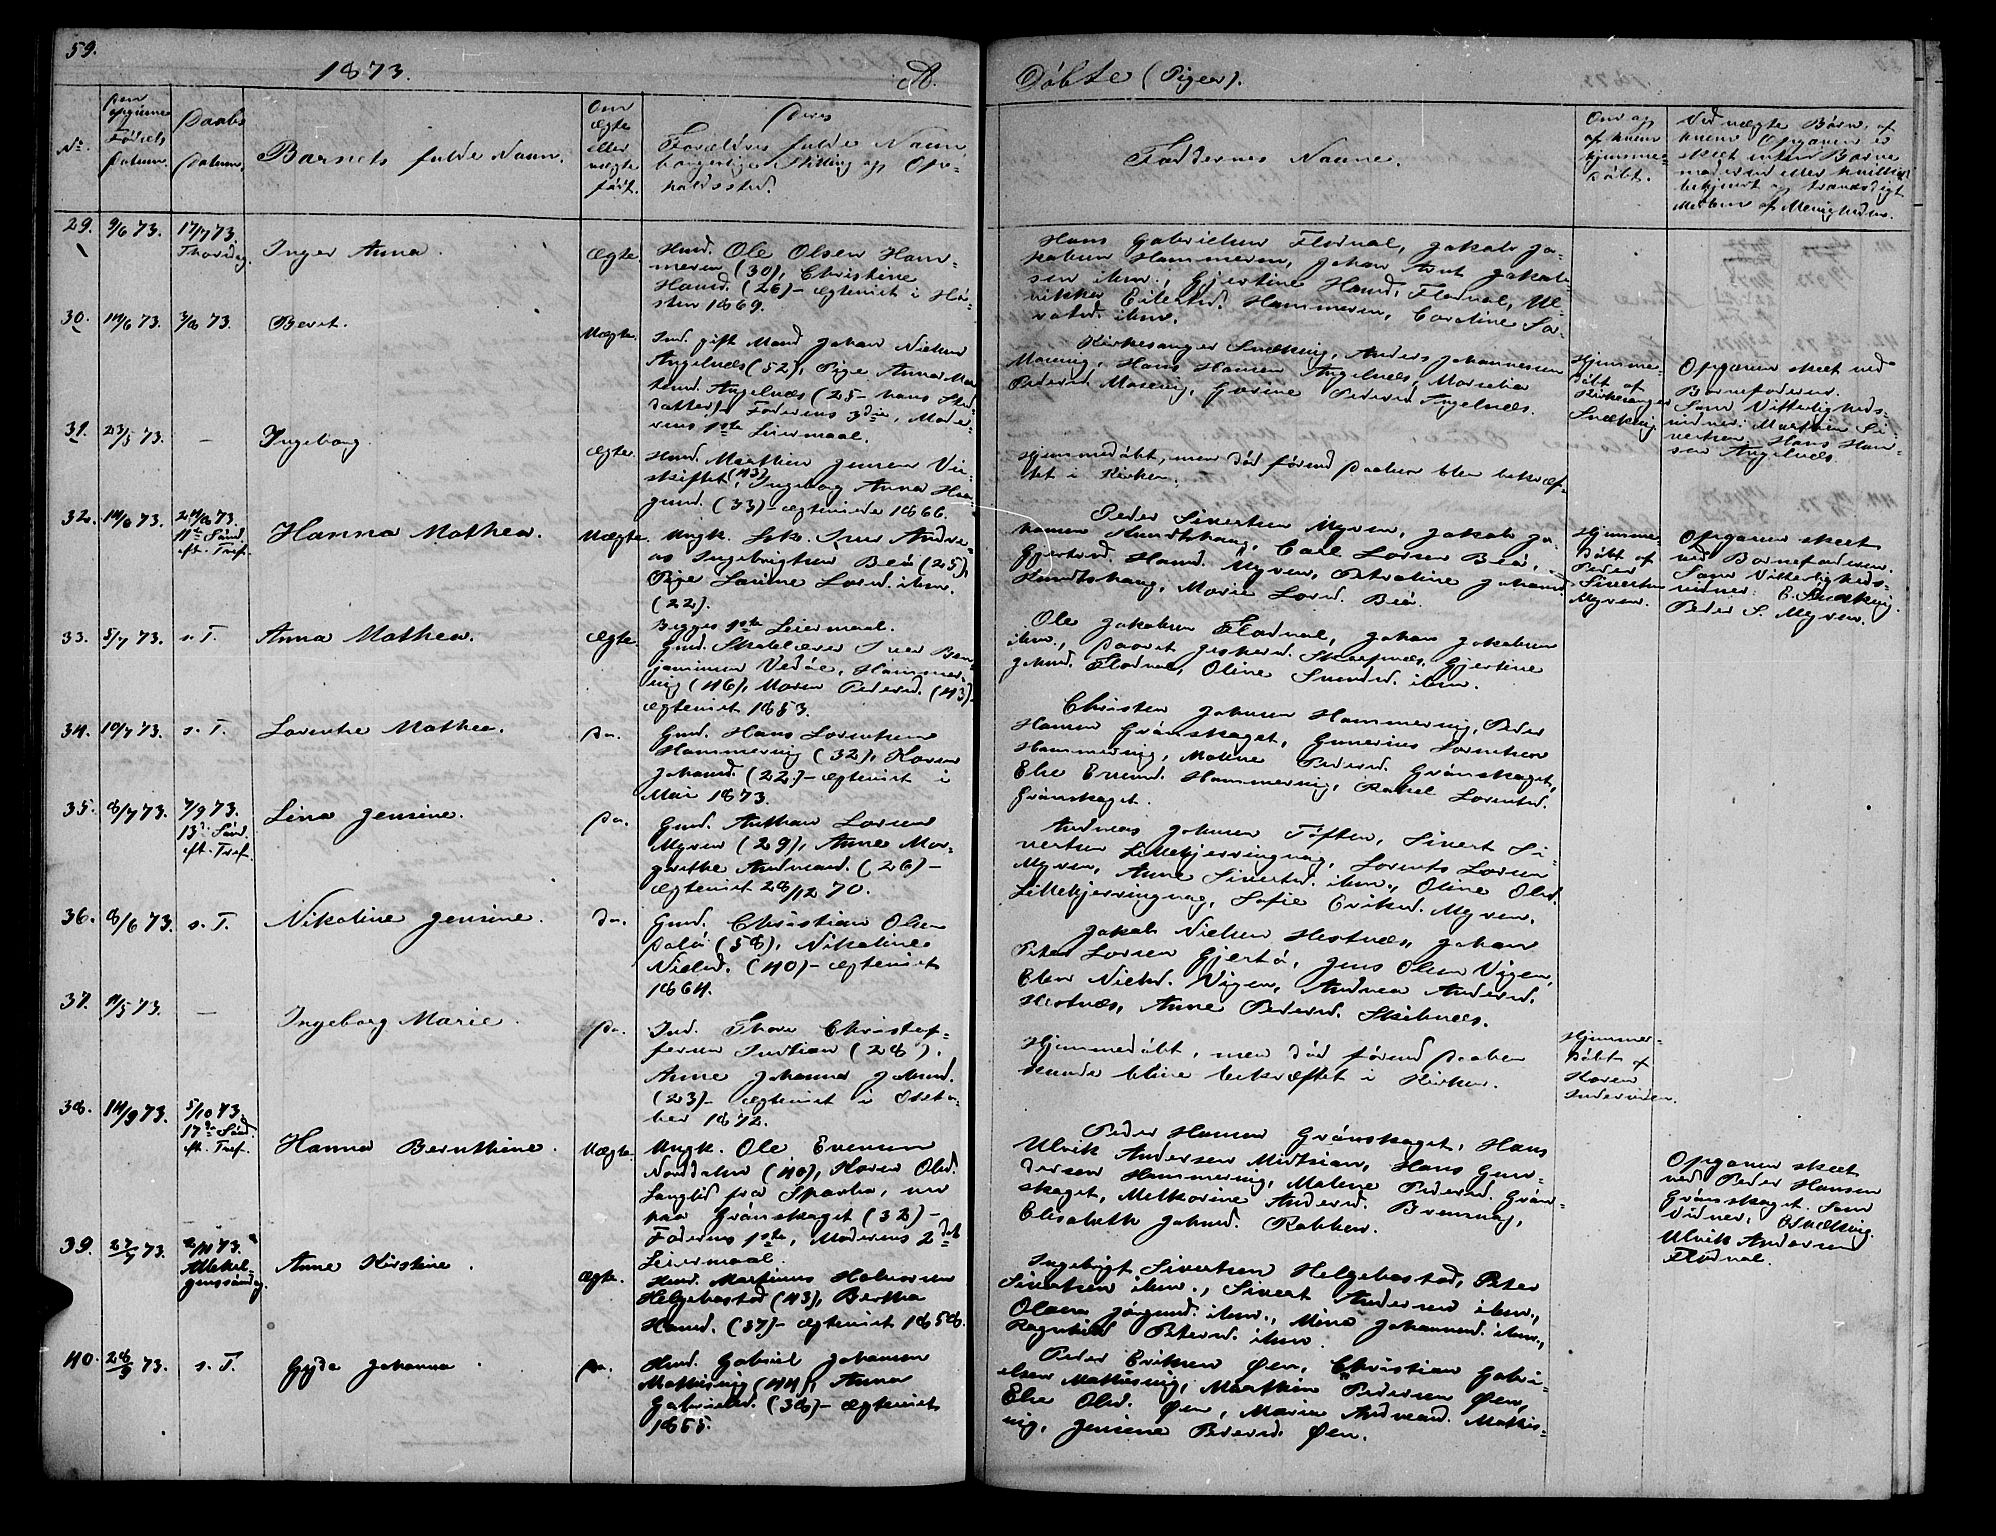 59.
1873.
A.
Døbte (Piger).
No.
Fødsels
Datum.
Daabs
Datum.
Barnets fulde Navn.
Om
ægte
eller
uægte
født.
Forældres fulde Navn
borgerlige Stilling og Op-
holdssted.
Faddernes Navne.
Om og
af hvem
hjemme-
døbt.
Ved uægte Børn, af
hvem Opgaven er
29.
9/6 73.
17/7 73.
Thorsdag.
Inger Anna.
Ægte.
Ole Olsen Ham-
meren (30), Christine
Hansd. (26) – ægteviet i Hø-
sten 1869.
Hans Gabrielsen Flodval, Jakob Ja-
kobsen Hammeren, Johan Arnt Jakob-
sen ibm., Gjertine Hansd. Flodval, Ul-
rikke Eilertsd. Hammeren, Caroline La-
ibm.
30.
14/6 73.
3/8 73.
Berit.
Uægte.
Ind. gift Mand Johan Nielsen
Angelnæs (52), Pige Anna Mar-
Angelnæs (25 – hans Sted-
datter) – Faderens 3die, Mode-
rens 1ste Leiermaal.
Kirkesanger Snekvig, Anders Johannessen
Masvig, Hans Hansen Angelnæs, Marselia
Pedersd. Masvig, Gurine Pedersd. Angelnæs.
Hjemme-
døbt af
Kirkesanger
Snekvig.
Opgaven skeet ved
Barnefaderen.
Som Vitterligheds-
vidner: Mathias Si-
vertsen – Hans Han-
sen Angelnæs.
31.
23/5 73.
–
Ingeborg.
Ægte.
Jensen Vin-
skiftet (43), Ingeborg Anna Haa-
(33) – ægteviede 1866.
Hjemmedøbt, men død førend Daaben blev bekræf-
tet i Kirken.
32.
14/6 73.
24/8 73.
11te Sønd.
eft. Tref.
Hanna Mathea.
Uægte.
Ungk. Fisk. Iver Andre-
as Ingebrigtsen Beø (25),
Pige Lovine Larsd. ibm.
(22).
Begges 1ste Leiermaal.
Peder Sivertsen Myren, Jakob Jo-
hansen Knudtshaug, Carl Larsen Beø,
Gjertrud Hansd. Myren, Petroline Johansd.
Knudtshaug, Marie Larsd. Beø.
Hjemme-
døbt af
Peder
Sivertsen
Myren.
Opgaven skeet
ved Barnefaderen.
Som Vitterligheds-
vidner: E. Snekvig
Peder S. Myren.
33.
5/7 73.
s. T.
Anna Mathea.
Ægte.
Gmd. Skolelærer Iver Ben-
jaminsen Vedøe, Hammer-
vig (46), Maren Pedersd. (43) –
ægteviet 1853.
Ole Jakobsen Flodval, Johan Jakobsen
ibm., Gjertine
Johnsd. Flodval, Oline ibm.
34.
10/7 73.
s. T.
Lorentse Mathea.
Do.
Gmd. Hans Lorentsen
Hammervig (32), Karen
Johansd. (22) – ægteviet i
Mai 1873.
Christen Johnsen Hammervig, Peder
Hansen Grønskaget, Gunerius Lorentsen
Hammervig, Malene Pedersd. Grønskaget,
Else Evensd. Hammervig, Rakel Lorentsd.
Grønskaget.
35.
8/7 73.
7/9 73.
13 Sønd.
eft. Tref.
Lina Jensine.
Do.
Gmd. Anthon Larsen
Myren (29), Anne Mar-
grethe Andreasd. (26) –
ægteviet 28/12 70.
Andreas Johnsen Tøften, Sivert Si-
vertsen Lillekjerringvaag, Lorents Larsen
Myren, Anne Sivertsd. ibm., Oline Olsd.
Lillekjerringvaag, Sofie Eriksd. Myren.
36.
8/6 73.
s. T.
Nikoline Jensine.
Do.
Gmd. Christian Olsen
Dalø (58), Nikoline
Nielsd. (40) – ægteviet
1864.
Jakob Nielsen Hestnæs, Johan
Peter Larsen Gjertø, Jens Olsen Vigen,
Elen Nielsd. Vigen, Andrea Andersd.
Hestnæs, Anne Pedersd. Skibnæs.
37.
11/5 73.
–
Ingeborg Marie.
Do.
Ind. Thore Christof-
fersen Indtian (28),
Anne Johanna Johnsd.
(23) – ægteviet i Okto-
ber 1872.
Hjemmedøbt, men død førend Daaben
kunde blive bekræftet i Kirken.
Hjemme-
døbt af
Karen
38.
14/9 73.
5/10 73.
17de Sønd.
eft. Tref.
Hanna Bernthine.
Uægte.
Ungk. Ole Evensen
Norddalen (40), Karen Olsd.
Langlid fra Sparbu, nu
paa Grønskaget (32) –
Faderens 1ste, Moderens 2det
Leiermaal.
Peder Hansen Grønskaget, Hans
Ulrik Andersen Hans Gun-
dersen Hammervig, Malene Pedersd. Grøn-
skaget, Melkorine Andersd. Bremvaag,
Elisabeth Johnsd. Rabben.
Opgaven skeet
ved Peder Hansen
Grønskaget. Som
Vidner: E. Snekvig.
Ulrik Andersen
Flodval.
39.
27/7 73.
2/11 73.
Allehel-
genssøndag.
Anne Kirstine.
Ægte.
Martinus Halvorsen
Helgebostad (43), Bertha
Hansd. (37) – ægteviet 1858.
Ingebrigt Sivertsen Helgebostad, Peter
Sivertsen ibm., Sivert Andersen ibm.,
Olava Jørgensd. ibm., Mina Johannesd. ibm.,
Ragnhild Petersd. ibm.
40.
28/9 73.
s. T.
Gyda Johanna.
Do.
Gabriel Johansen
Mathisvig (44), Anna
Gabrielsd. (38) – ægteviet
1855.
Peder Eriksen Øen, Christian Gabri-
elsen Mathisvig, Mathias Pedersen Øen,
Else Olsd. Øen, Marie Andreasd. Mathis-
vig, Jensine Pedersd. Øen.